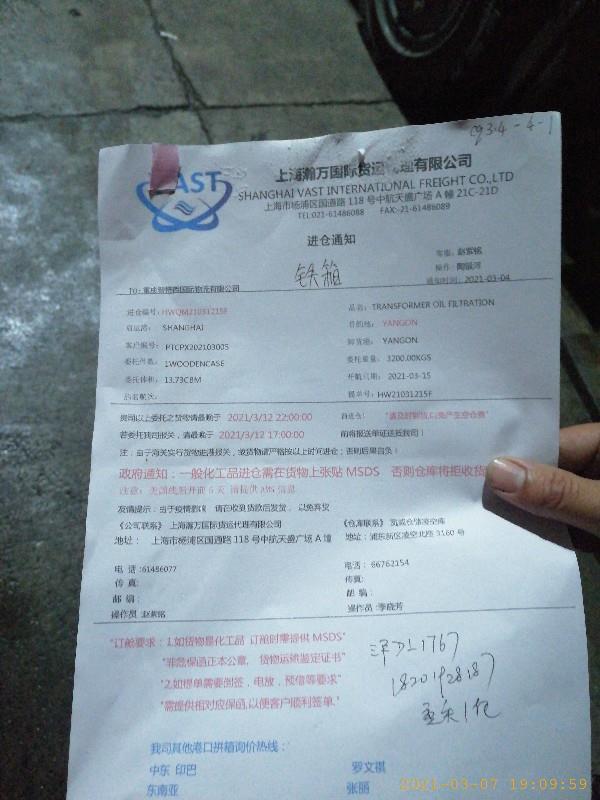 093-4-4-1
VAST
上海瀚万国际货运代理有限公司
SHANGHAI VAST INTERNATIONAL FREIGHT CO.,LTD
上海市杨浦区国通路 118 号中航天盛广场 A 幢 21C-21D
TEL:021-61486088 FAX:-21-61486089
进仓通知
铁箱
客服: 赵紫铭
操作:
通知时间: 2021-03-04
TO:
进仓编号: HWQM21031215F
品名: TRANSFORMER OIL FILTRATION
启运港: SHANGHAI
目的地: YANGON
客户编号: PTCPX20210300S
卸货港: YANGON
委托件数: 1WOODENCASE
委托重量: 3200.00KGS
委托体积: 13.73CBM
开航日期: 2021-03-15
船名航次:
提单号: HW21031215F
贵司以上委托之货物请最晚于 2021/3/12 22:00:00 前进仓!
若委托我司报关，请最晚于 2021/3/12 17:00:00 前将报关单证送抵我司!
注: 由于海关实行货物运抵报关，或货物请严格按以上时间进仓; 否则后果自负!
政府通知: 一般化工品进仓需在货物上张贴 MSDS 否则仓库将拒收货
注意: 美加线船开前 6 天 请提供 AMS 信息
《公司联系》 上海瀚万国际货运代理有限公司
《仓库联系》
地址: 上海市杨浦区国通路 118 号中航天盛广场 A 幢
地址: 浦东新区凌空北路 3160 号
电 话 :61486077
电话: 66762154
传 真:
传真:
邮 编:
邮 编:
操作员 赵紫铭
操作员: 李晓芳
"订舱要求: 1.如货物是化工品 订舱时需提供 MSDS"
"非危保函正本公章, 货物运输鉴定证书"
"2.如提单需要倒签，电放，预借等要求"
"需提供相对应保函,以便客户顺利签单."
沪DL1767
18201928187
我司其他港口拼箱询价热线:
中东 印巴
罗文祺
东南亚
张丽
2021-03-07 19:09:59